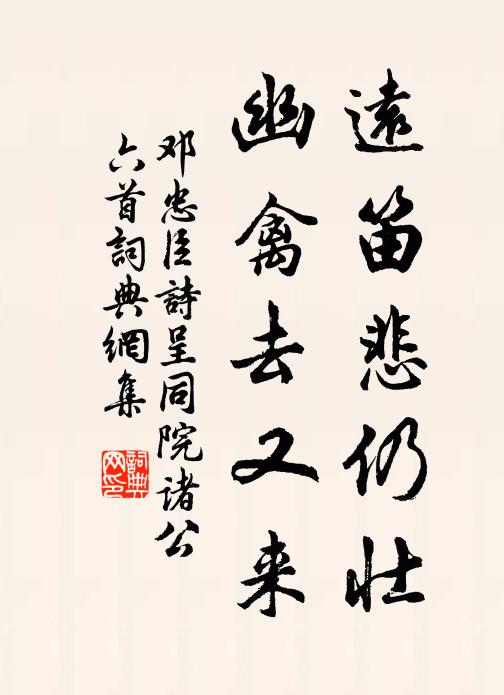 遠笛悲仍壮
幽禽去又来
邓忠臣詩呈同院诸公
六首詞典網集
詞典
网印